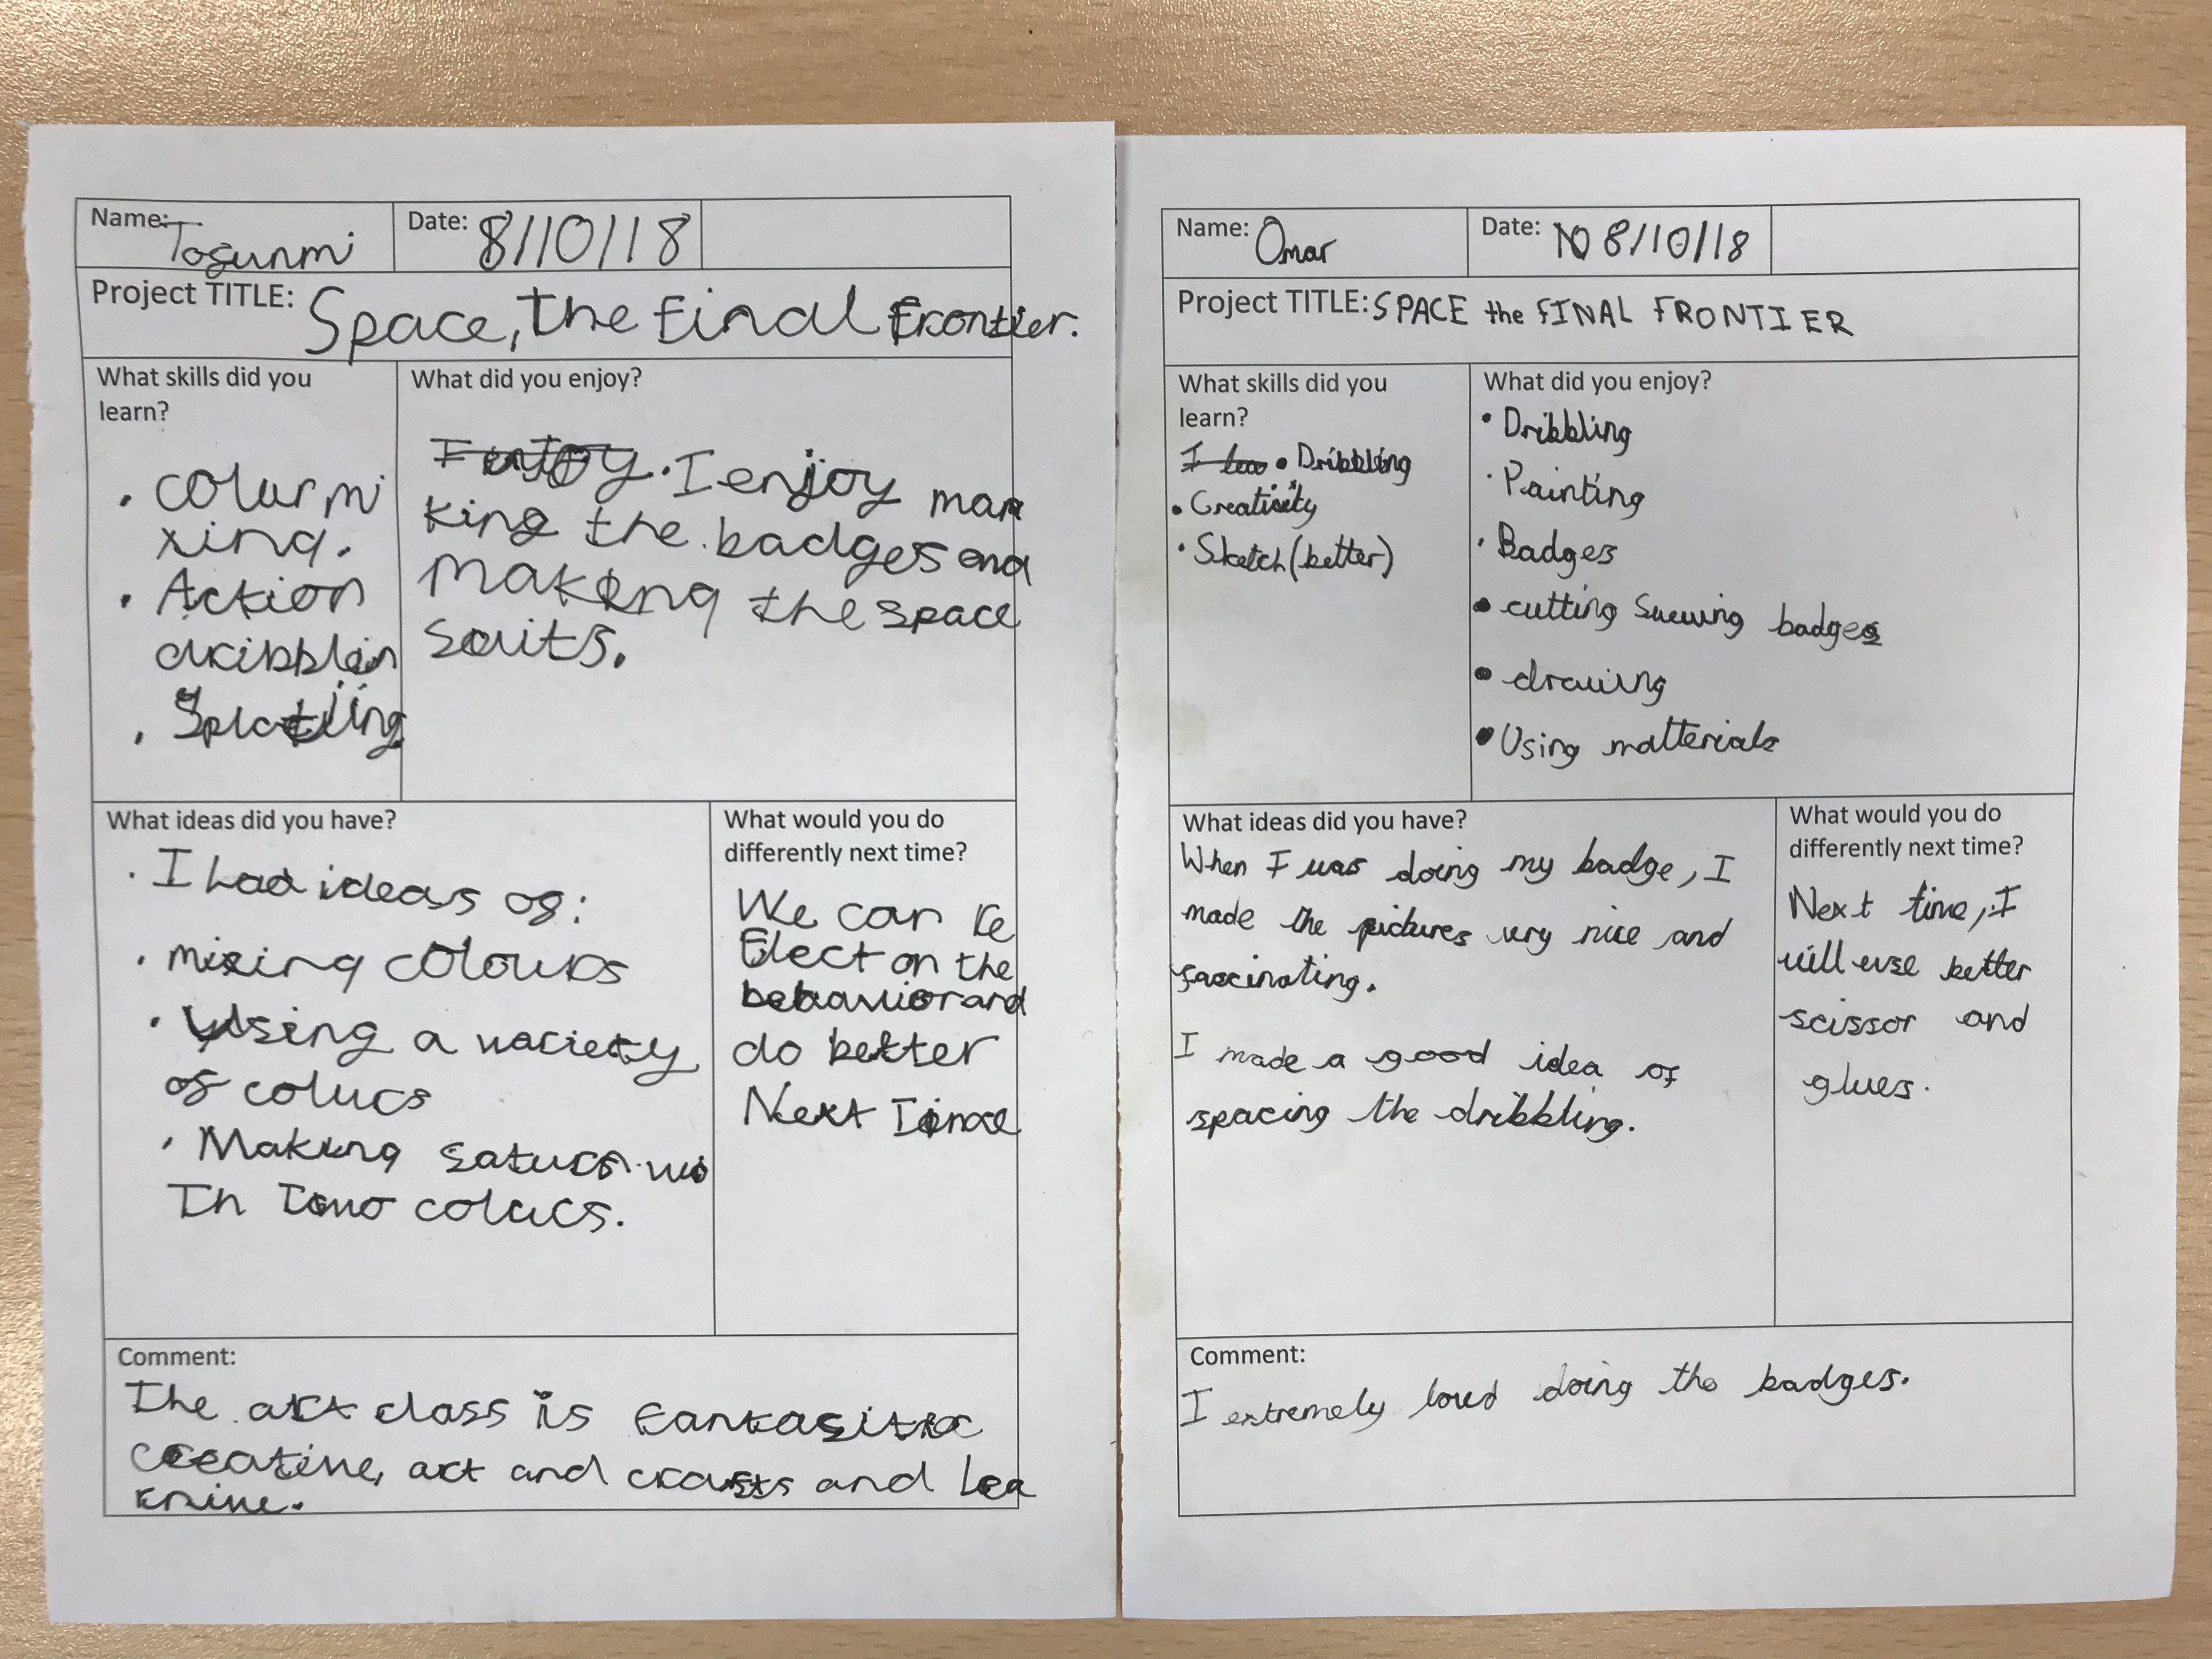 Name: Togunmi
Date: 8/10/18
Project TITLE: Space, the final frontier.
What skills did you
learn?
• colur mi
xing.
• Action
dribblin
• Splatling
What did you enjoy?
Enjoy. I enjoy mar
king the badges and
making the space
suits.
What ideas did you have?
• I had ideas of:
• mixing colours
• Using a variety
of colurs
• Making saturn wi
Th Two colurs.
What would you do
differently next time?
We can re
flect on the
behavior and
do better
Next Time
Comment:
The art class is fantasitic
creative, art and crafts and lea
rnine.
Name: Omar
Date: 8/10/18
Project TITLE: SPACE the FINAL FRONTIER
What skills did you
learn?
I • Dribbling
• Creativity
• Sketch (better)
What did you enjoy?
• Dribbling
• Painting
• Badges
• cutting Suewing badges
• drawing
• Using matterials
What ideas did you have?
When I was doing my badge, I
made the pictures very nice and
fascinating.
I made a good idea of
spacing the dribbling.
What would you do
differently next time?
Next time, I
will use better
scissor and
glues.
Comment:
I extremely loved doing the badges.